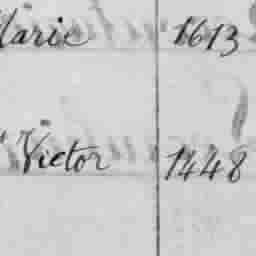 Marie 1613
Victor 1448